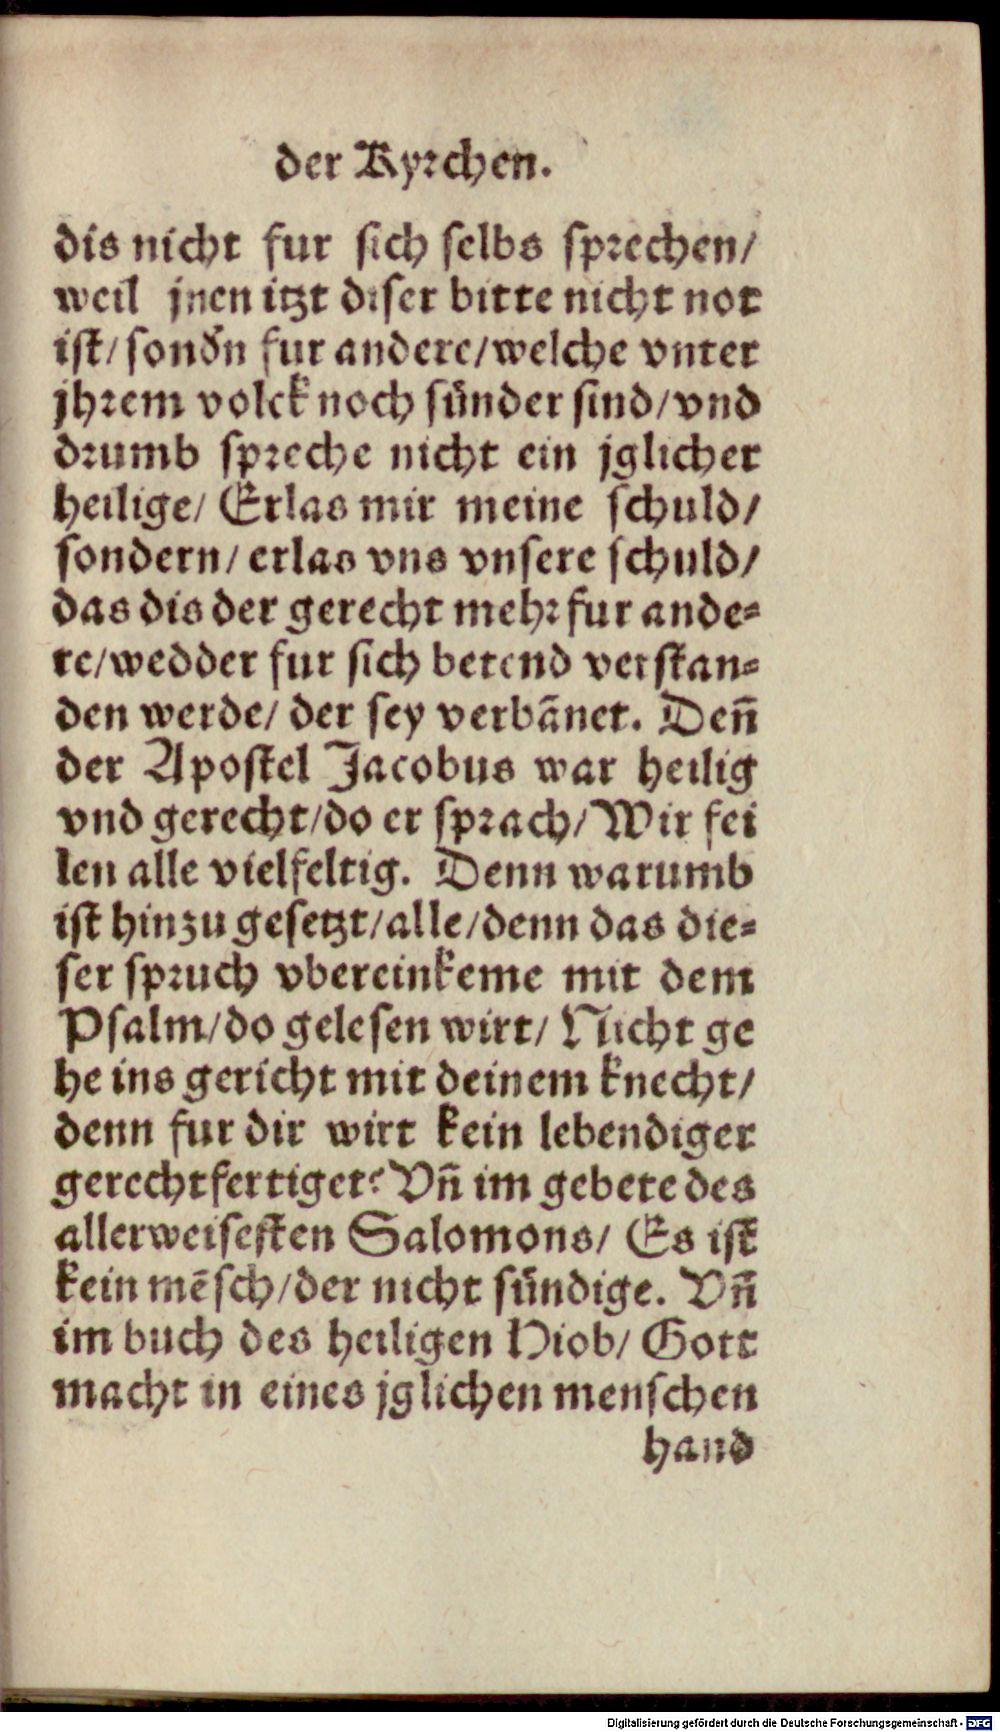 der Kyrchen.
dis nicht fur sich selbs sprechen/
weil jnen itzt diser bitte nicht not
ist/ sond̕n fur andere/welche vnter
jhrem volck noch sünder sind/vnd
drumb spreche nicht ein jglicher
heilige/ Erlas mir meine schuld/
sondern/ erlas vns vnsere schuld/
das dis der gerecht mehr fur ande-
re/wedder fur sich betend verstan-
den werde/ der sey verbãnet. Deñ
der Apostel Jacobus war heilig
vnd gerecht/do er sprach/ Wir fei
len alle vielfeltig. Denn warumb
ist hinzu gesetzt/alle/denn das die-
ser spruch vbereinkeme mit dem
Psalm/do gelesen wirt/ Nicht ge
he ins gericht mit deinem knecht/
denn fur dir wirt kein lebendiger
gerechtfertiget? Vñ im gebete des
allerweisesten Salomons/ Es ist
kein mẽsch/der nicht sündige. Vñ
im buch des heiligen Hiob/ Gott
macht in eines jglichen menschen
hand
Digitalisierung gefördert durch die Deutsche Forschungsgemeinschaft - DFG